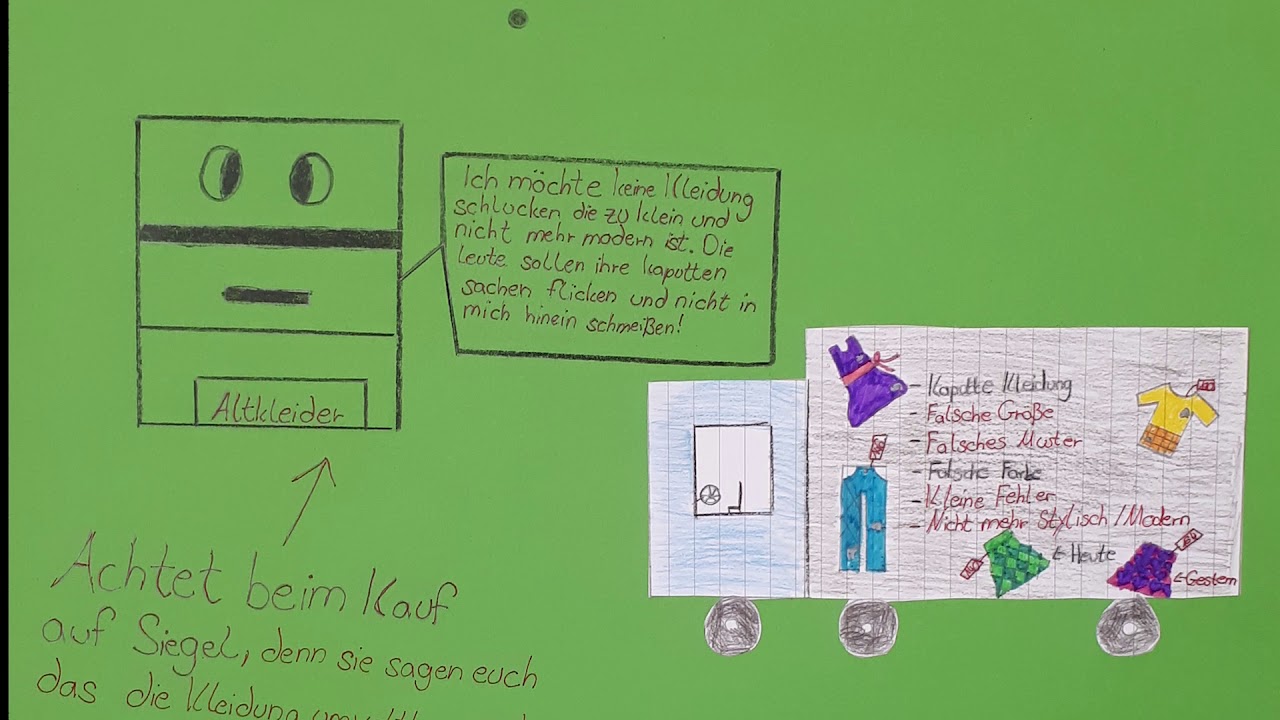 Ich möchte keine Kleidung
schlucken die zu klein und
nicht mehr modern ist. Die
Leute sollen ihre kaputten
sachen flicken und nicht in
mich hinein schmeißen!
Altkleider
- Kaputte Kleidung
- Falsche Größe
- Falsches Muster
- Falsche Farbe
- Kleine Fehler
- Nicht mehr Stylisch/Modern
← Heute
← Gestern
Achtet beim Kauf
auf Siegel, denn sie sagen euch
das die Kleidung